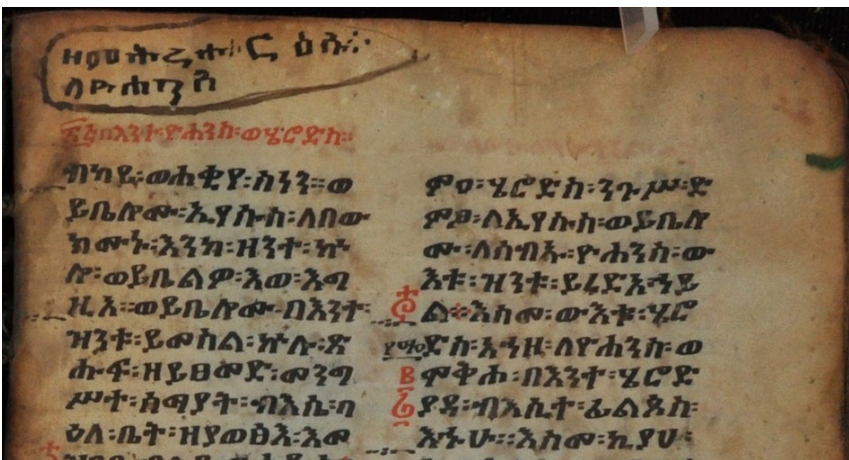 ለዮሐንስ
በእንተ፡ዮሐንስ፡ወሄሮድስ።
ብካይ፡ወሐቂየ፡ስነን።ወ
ይቤሎሙ፡ኢየሱስ፡ለበው
ክሙኑ፡እንከ፡ዘንተ፡ኵ
ሎ፡ወይቤልዎ፡እወ፡እግ
ዚእ።ወይቤሎሙ፡በእንተ፡
ዝንቱ፡ይመስል፡ኵሉ፡ጸ
ሐፍ፡ዘይፀመድ፡መንግ
ሥተ፡ሰማያት፡ብእሴ፡ባ
ዕለ፡ቤት፡ዘያወፅእ፡እመ
ምዐ፡ሄሮድስ፡ንጉሥ፡ድ
ምፀ፡ለኢየሱስ፡ወይቤሎ
ሙ፡ለሰብኡ፡ዮሐንስ፡ው
እቱ፡ዝንቱ፡
እስመ፡ውእቱ፡ሄሮ
ድስ፡አኀዞ፡ለዮሐንስ፡ወ
ሞቅሖ፡በእንተ፡ሄሮድ
ያዳ፡ብእሲተ፡ፊልጶስ፡
እኁሁ።እስመ፡ኪያሁ፡